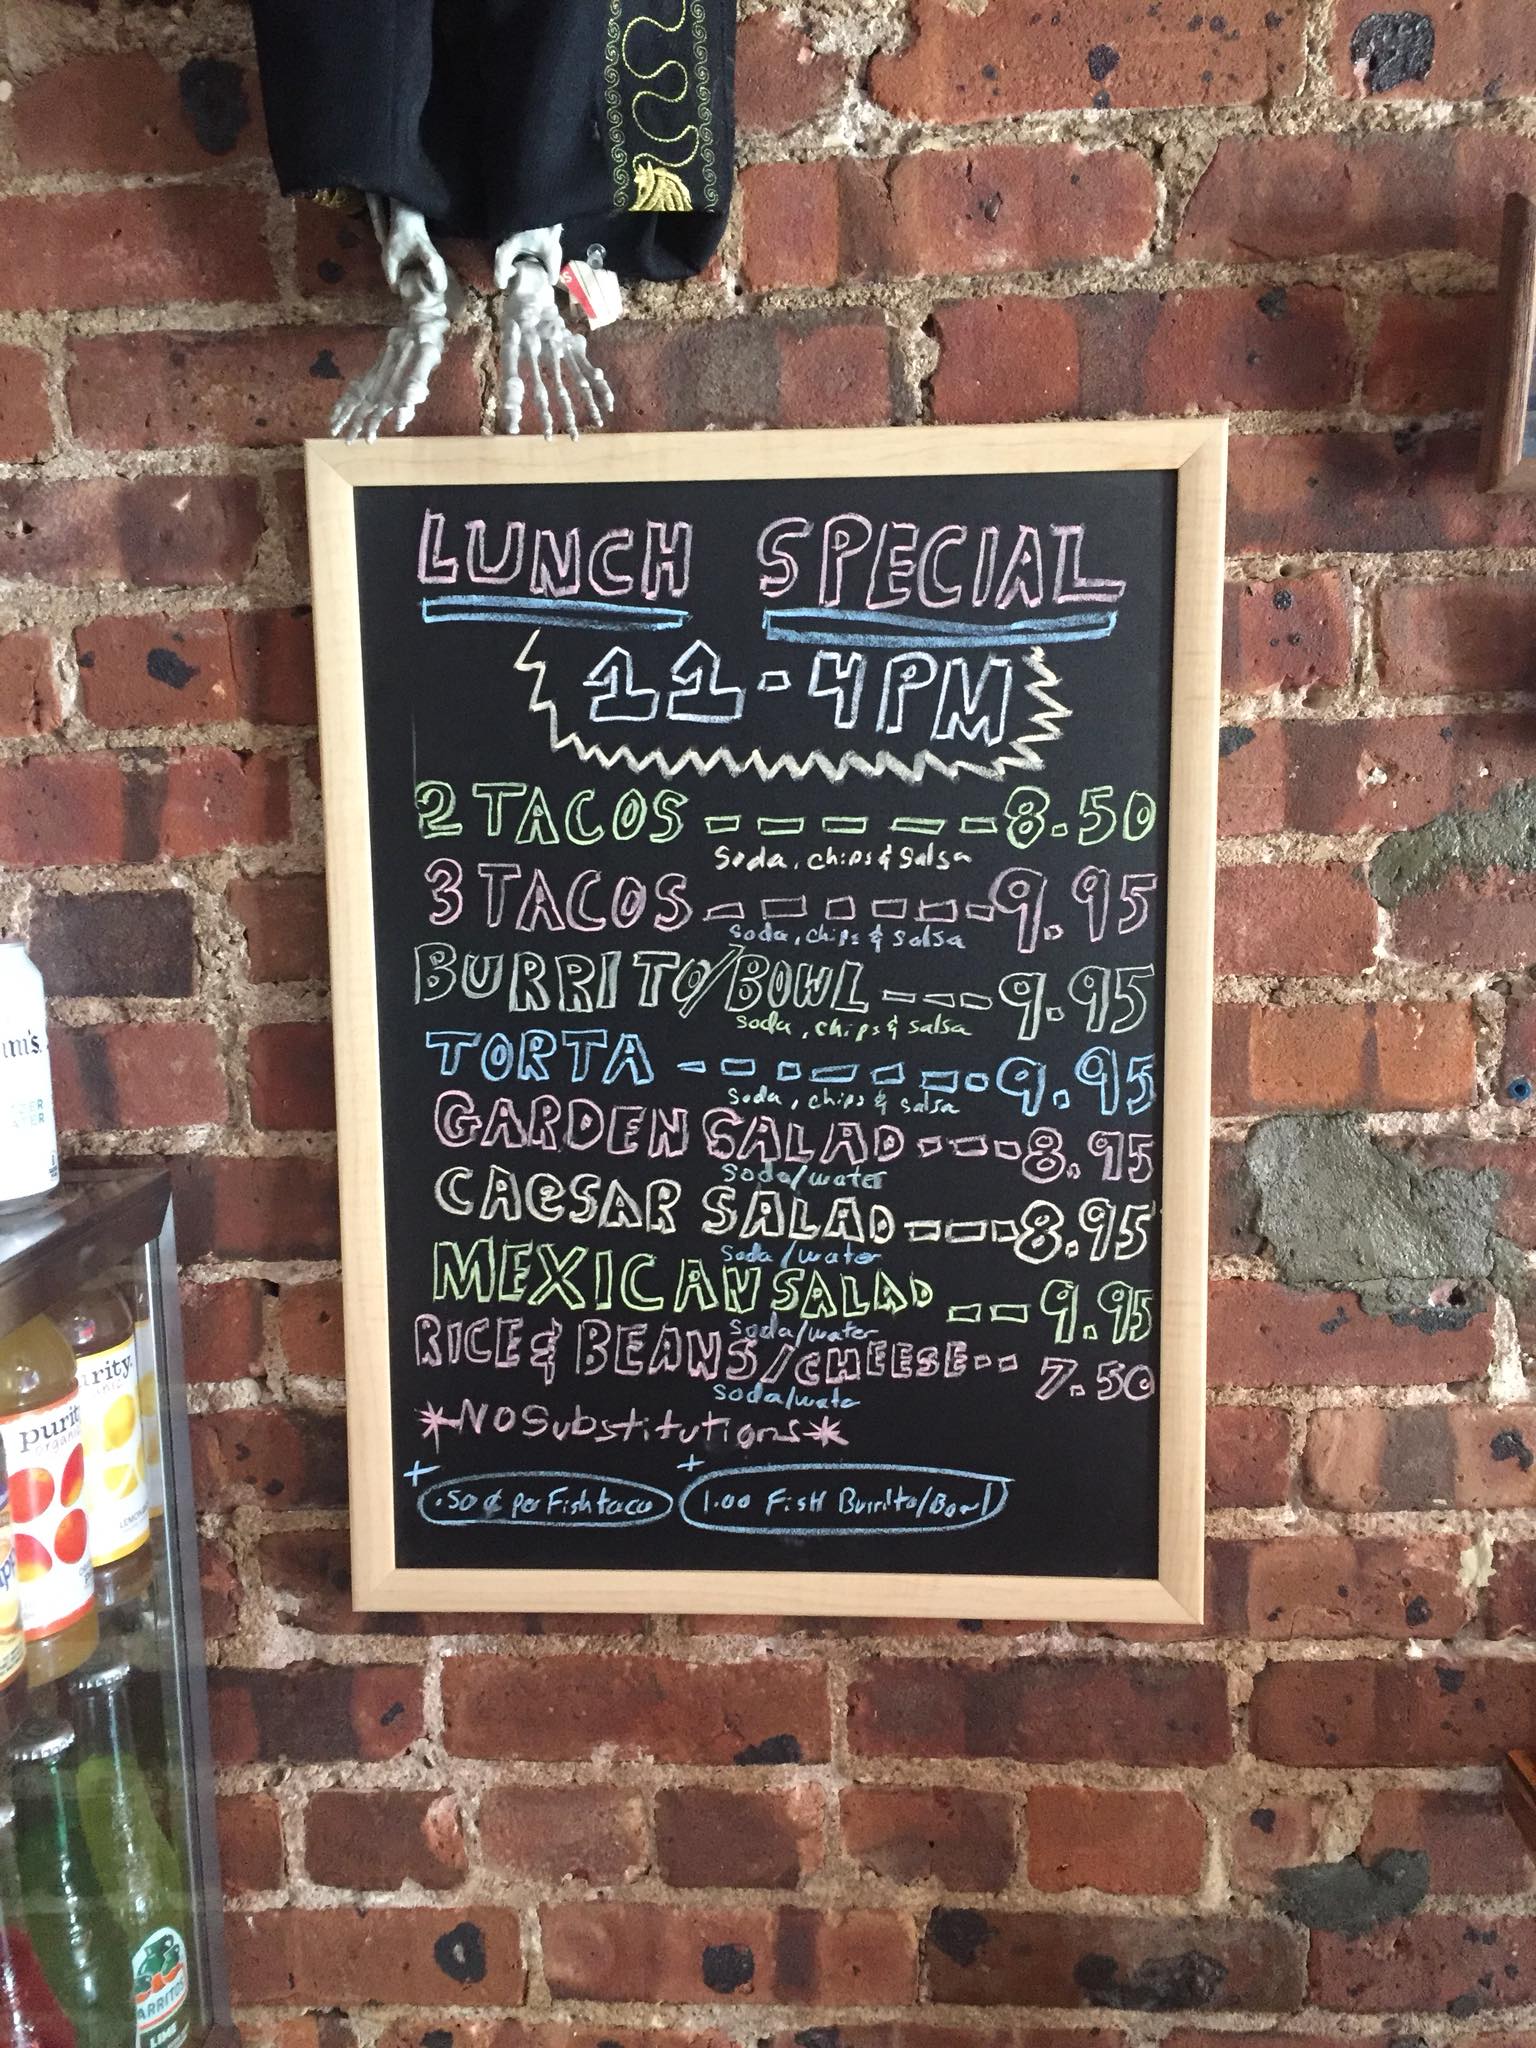 LUNCH SPECIAL
11-4PM
2 TACOS - - - - - 8.50
Soda, chips & Salsa
3 TACOS - - - - - - 9.95
Soda, chips & Salsa
BURRITO/BOWL - - - 9.95
Soda, chips & salsa
TORTA - - - - - - - 9.95
Soda, chips & salsa
GARDEN SALAD - - - 8.95
Soda/water
CAeSAR SALAD - - - 8.95
Soda/water
MEXICAN SALAD - - 9.95
Soda/water
RICE & BEANS/CHEESE - - 7.50
Soda/wate
*NO Substitutions*
+ .50¢ per Fish taco + 1.00 FisH Burrito/Bowl
purity.
organic
purity.
LEMON
JARRITOS
LIME